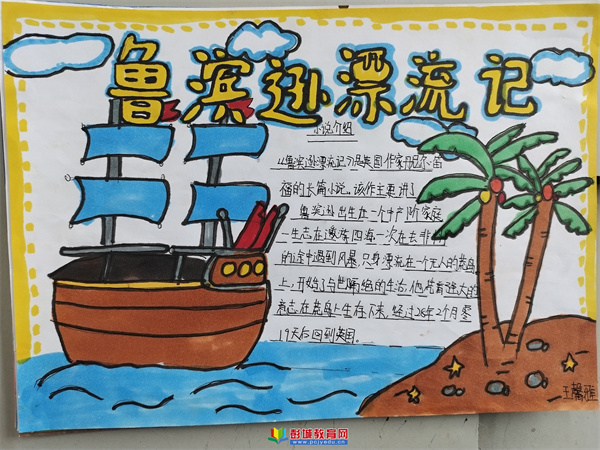 鲁滨逊漂流记
小说介绍
《鲁滨逊漂流记》是英国作家丹尼尔·笛
福的长篇小说。该作主要讲了
鲁滨逊出生在一个中产阶级家庭
一生志在遨游四海一次在去非洲
的途中遇到风暴,只身漂流在一个无人的荒岛
上,开始了与世隔绝的生活,他凭着强大的
意志在荒岛上生存下来,经过28年2个月零
19天后回到英国。
王馨雅
彭城教育网
www.pcjyedu.cn